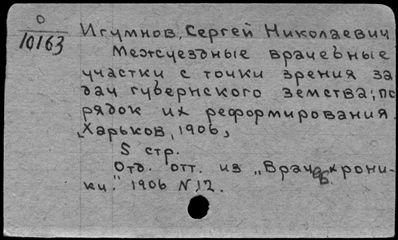 О
10163
Игумнов, Сергей Николаевич
Межсуездные врачебные
участки с точки зрения за
дач губернского земства; по
рядок их реформирования.
Харьков, 1906,
5 стр.
Отд. отт. из „Врач. хрони-
ки." 1906 N 12.